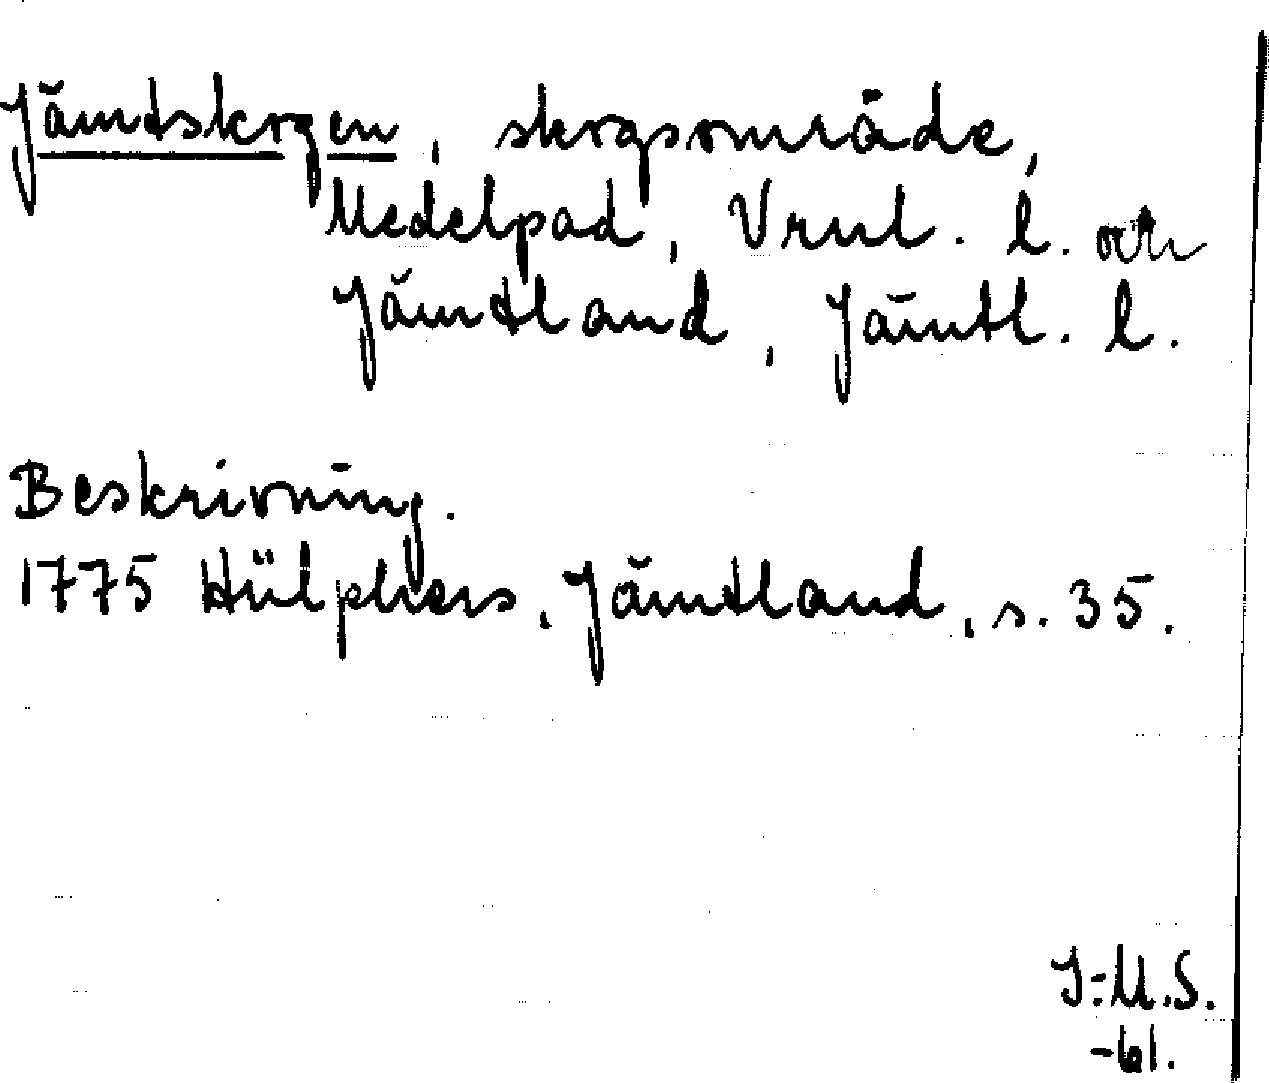 Jämtskogen, skogsområde,
Medelpad, Vrnl. l. och
Jämtland, Jämtl. l.
Beskrivning.
1775 Hülphers, Jämtland, s. 35.
I-M.S.
-61.